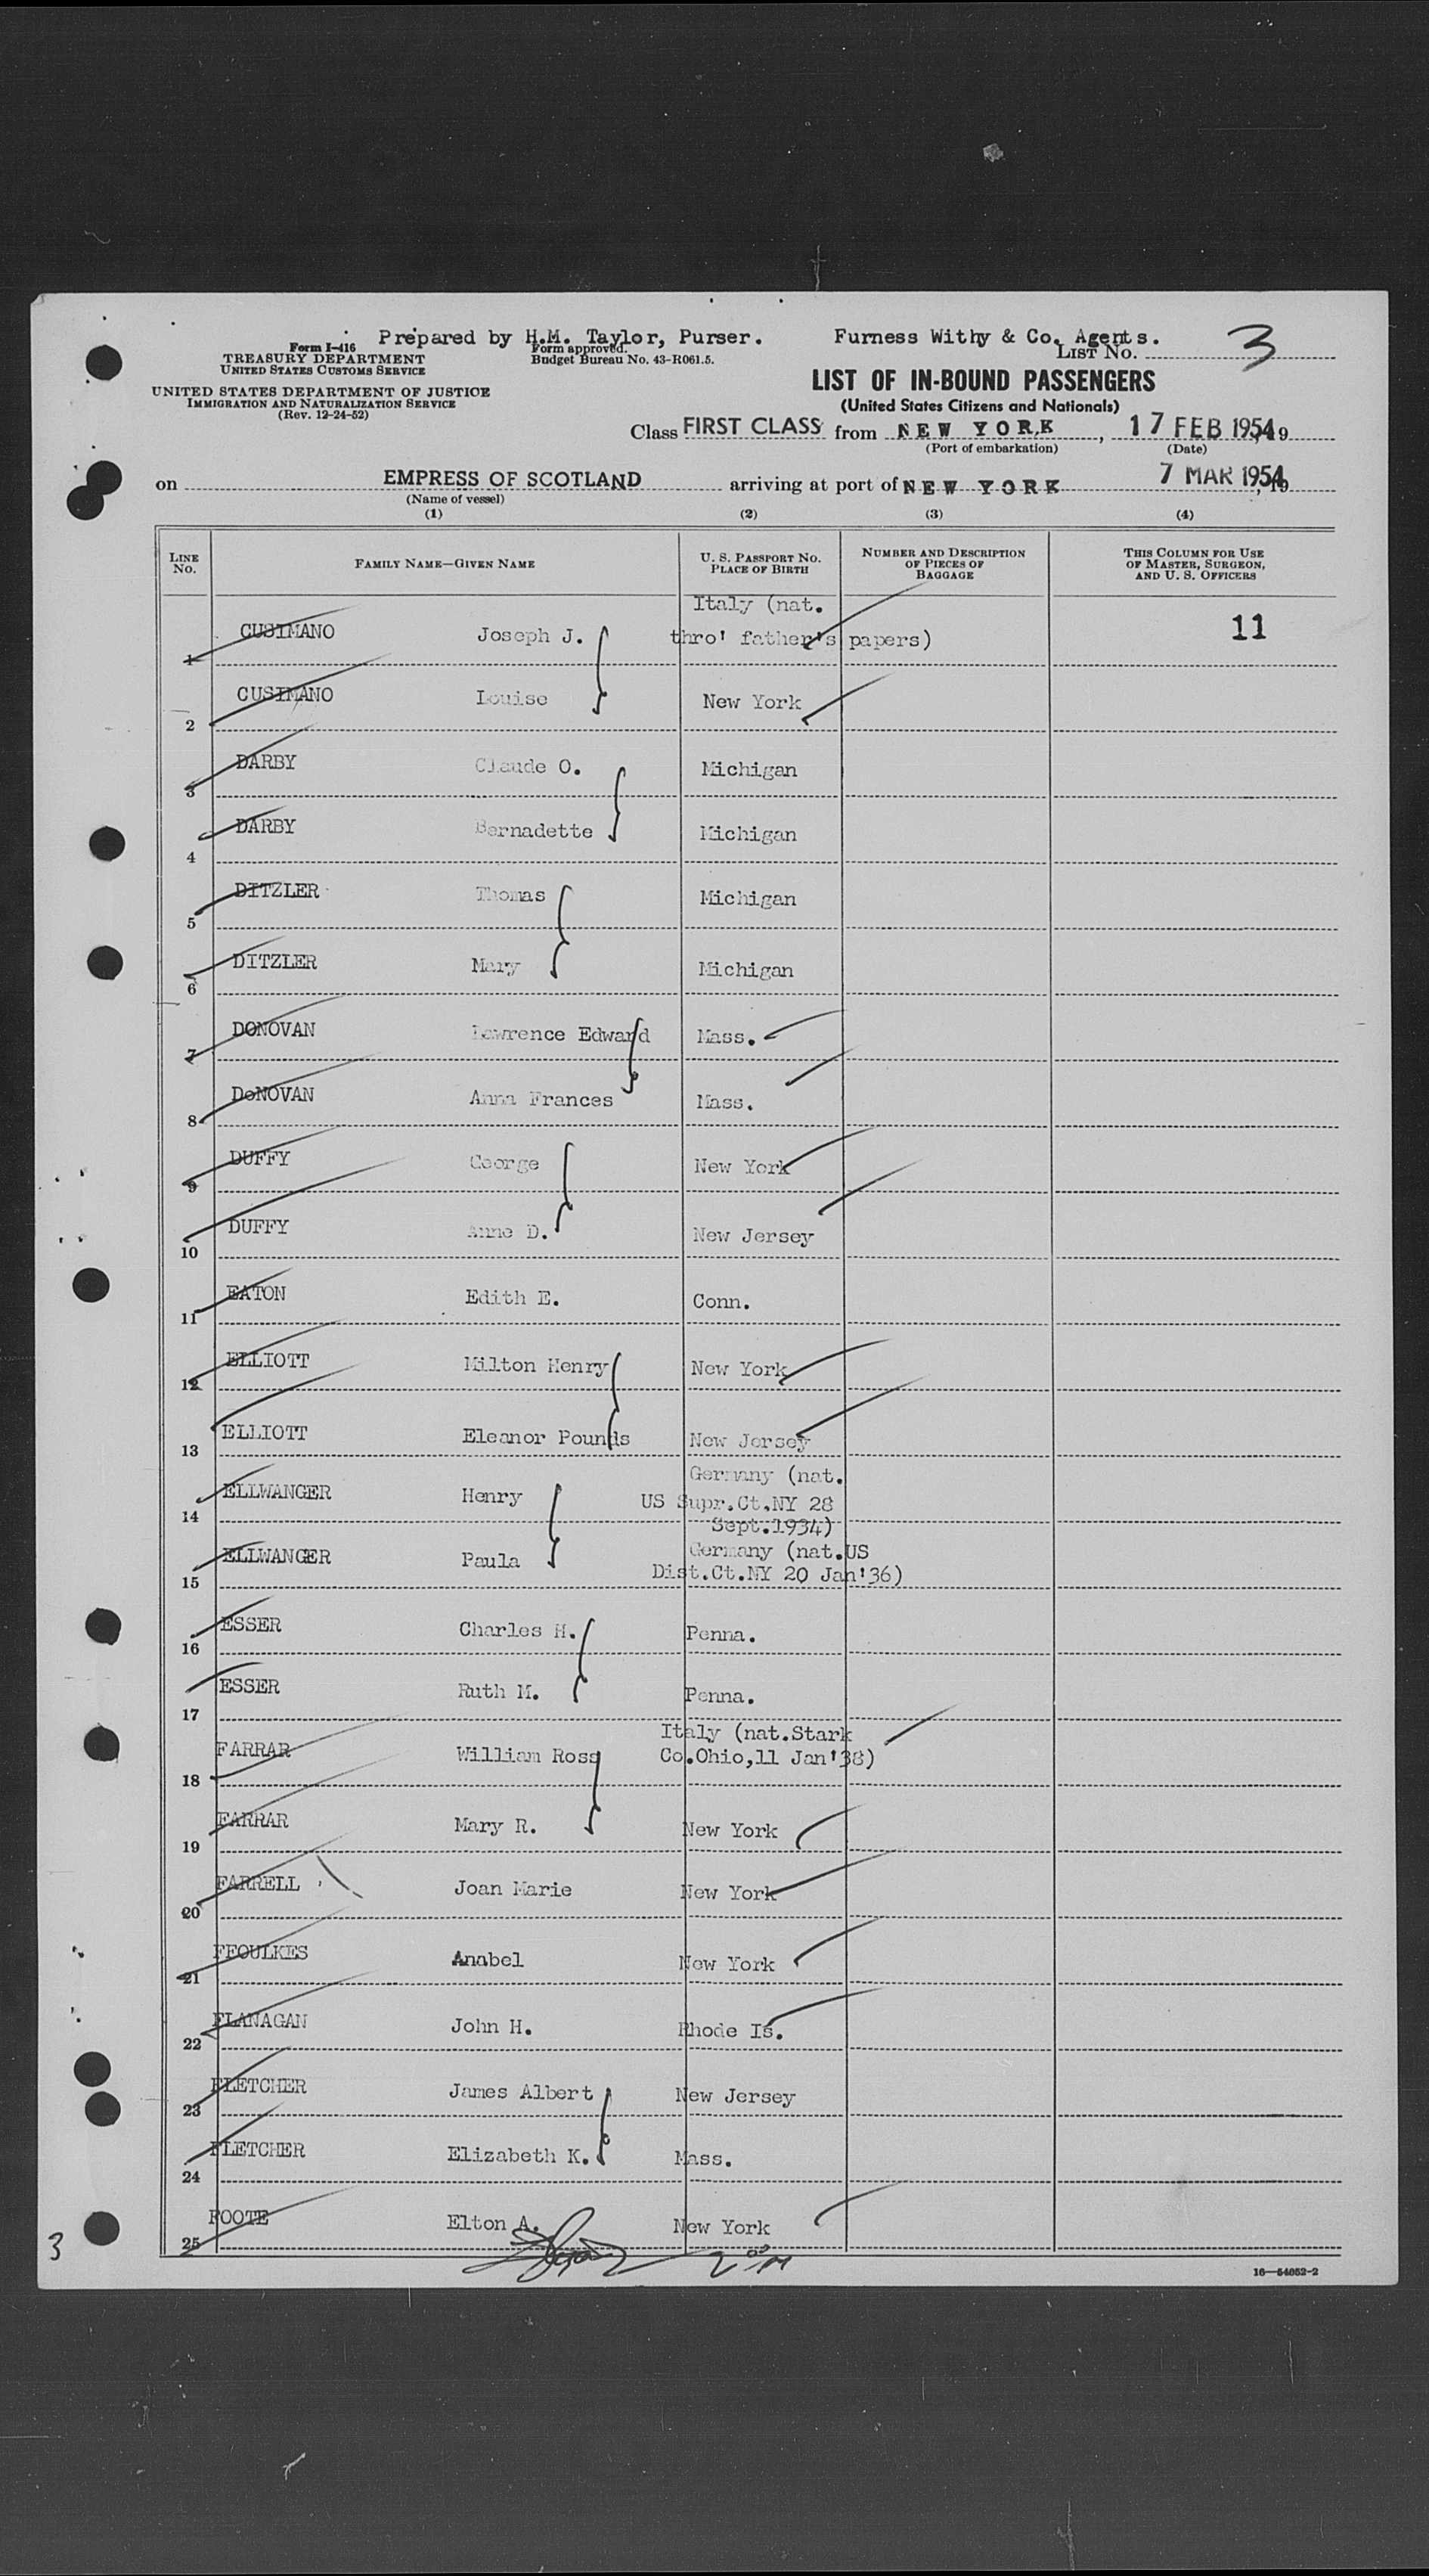 Prepared by H.M. Taylor, Purser. Furness Withy & Co. Agents.
Form I-416
TREASURY DEPARTMENT
UNITED STATES CUSTOMS SERVICE
Form approved.
Budget Bureau No. 43-R061.5.
LIST No. 3
UNITED STATES DEPARTMENT OF JUSTICE
IMMIGRATION AND NATURALIZATION SERVICE
(Rev. 12-24-52)
LIST OF IN-BOUND PASSENGERS
(United States Citizens and Nationals)
Class FIRST CLASS from NEW YORK, 17 FEB 1954, 19
(Port of embarkation) (Date)
on EMPRESS OF SCOTLAND arriving at port of NEW YORK 7 MAR 1954, 19
(Name of vessel)
(1) (2) (3) (4)
LINE No. FAMILY NAME—GIVEN NAME U. S. PASSPORT No. PLACE OF BIRTH NUMBER AND DESCRIPTION OF PIECES OF BAGGAGE THIS COLUMN FOR USE OF MASTER, SURGEON, AND U. S. OFFICERS
1 CUSIMANO Joseph J. Italy (nat. thro' father's papers) 11
2 CUSIMANO Louise New York
3 DARBY Claude O. Michigan
4 DARBY Bernadette Michigan
5 DITZLER Thomas Michigan
6 DITZLER Mary Michigan
7 DONOVAN Lawrence Edward Mass.
8 DoNOVAN Anna Frances Mass.
9 DUFFY George New York
10 DUFFY Anne D. New Jersey
11 EATON Edith E. Conn.
12 ELLIOTT Milton Henry New York
13 ELLIOTT Eleanor Pounds New Jersey
14 ELLWANGER Henry Germany (nat. US Supr.Ct.NY 28 Sept.1934)
15 ELLWANGER Paula Germany (nat.US Dist.Ct.NY 20 Jan'36)
16 ESSER Charles H. Penna.
17 ESSER Ruth M. Penna.
18 FARRAR William Ross Italy (nat.Stark Co.Ohio,11 Jan'38)
19 FARRAR Mary R. New York
20 FARRELL Joan Marie New York
21 FFOULKES Anabel New York
22 FLANAGAN John H. Rhode Is.
23 FLETCHER James Albert New Jersey
24 FLETCHER Elizabeth K. Mass.
25 FOOTE Elton A. New York
3
16—54052-2